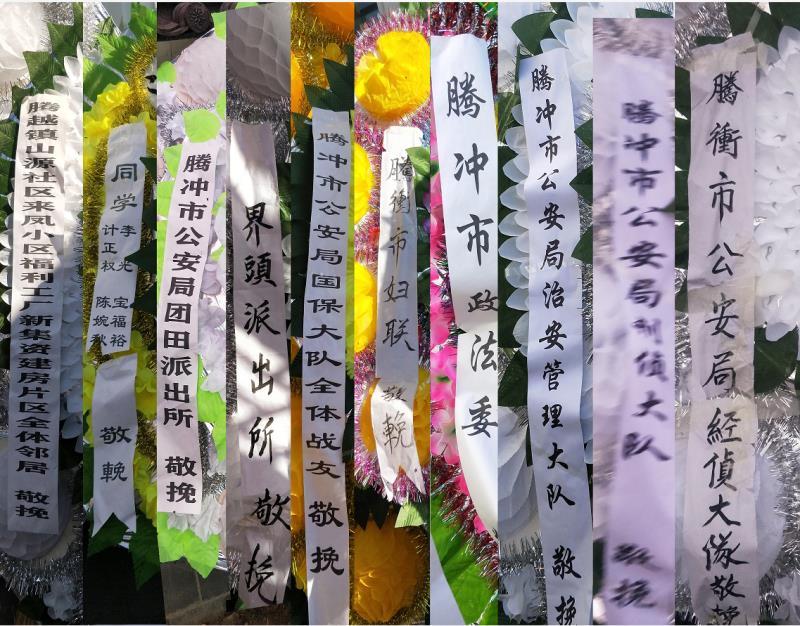 腾越镇山源社区来凤小区福利工厂新集资建房片区全体邻居 敬挽
同学
李光 宝福裕
计正权 陈婉秋
敬輓
腾冲市公安局团田派出所 敬挽
界頭派出所 敬挽
腾冲市公安局国保大队全体战友 敬挽
騰衝市妇联 敬輓
腾冲市政法委
腾冲市公安局治安管理大队 敬挽
腾冲市公安局刑侦大队 敬挽
騰衝市公安局經偵大隊 敬挽